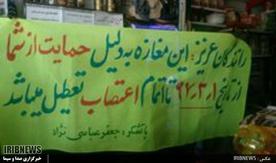 رانندگان عزیز: این مغازه به دلیل حمایت از شما
از تاریخ ۹۷.۳.۱ تا اتمام اعتصاب تعطیل میباشد
باتشکر: جعفر عباسی نژاد
IRIBNEWS
خبرگزاری صدا و سیما
IRIBNEWS